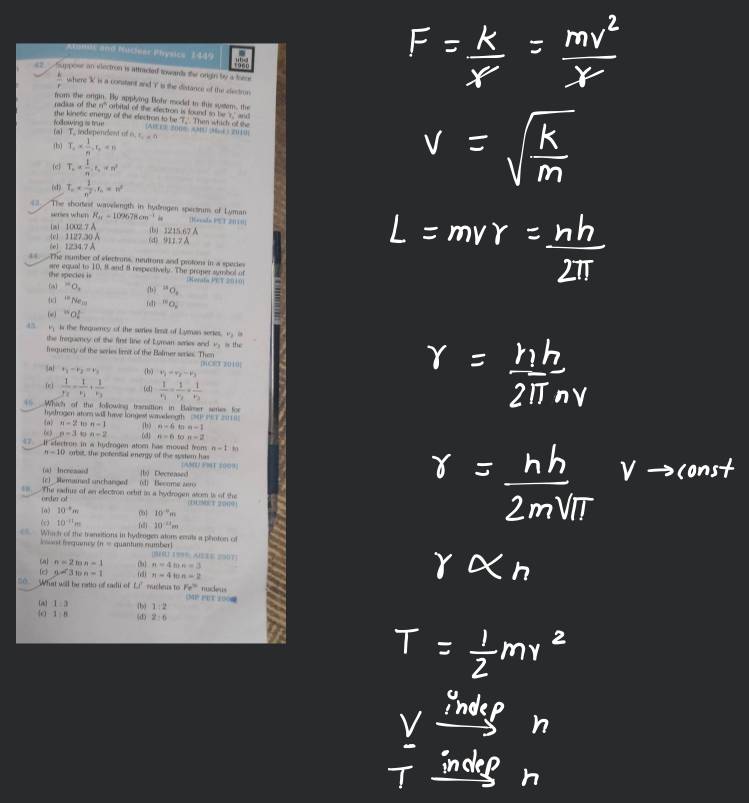 Atomic and Nuclear Physics 1449
ubd
1960
42. Suppose an electron is attracted towards the origin by a force
k/r where 'k' is a constant and 'r' is the distance of the electron
from the origin. By applying Bohr model to this system, the
radius of the nth orbital of the electron is found to be 'rn' and
the kinetic energy of the electron to be 'Tn'. Then which of the
following is true [AIEEE 2008; AMU (Med.) 2010]
(a) Tn independent of n, rn ∝ n
(b) Tn ∝ 1/n, rn ∝ n
(c) Tn ∝ 1/n, rn ∝ n²
(d) Tn ∝ 1/n², rn ∝ n²
43. The shortest wavelength in hydrogen spectrum of Lyman
series when RH = 109678 cm⁻¹ is [Kerala PET 2010]
(a) 1002.7 Å (b) 1215.67 Å
(c) 1127.30 Å (d) 911.7 Å
(e) 1234.7 Å
44. The number of electrons, neutrons and protons in a species
are equal to 10, 8 and 8 respectively. The proper symbol of
the species is [Kerala PET 2010]
(a) ¹⁶O₈ (b) ¹⁸O₈
(c) ¹⁸Ne₁₀ (d) ¹⁶O₈⁻
(e) ¹⁶O₈²⁻
45. ν1 is the frequency of the series limit of Lyman series, ν2 is
the frequency of the first line of Lyman series and ν3 is the
frequency of the series limit of the Balmer series. Then
[KCET 2010]
(a) ν1 − ν2 = ν3 (b) ν1 = ν2 − ν3
(c) 1/ν2 = 1/ν1 + 1/ν3 (d) 1/ν1 = 1/ν2 + 1/ν3
46. Which of the following transition in Balmer series for
hydrogen atom will have longest wavelength [MP PET 2010]
(a) n=2 to n=1 (b) n=6 to n=1
(c) n=3 to n=2 (d) n=6 to n=2
47. If electron in a hydrogen atom has moved from n=1 to
n=10 orbit, the potential energy of the system has
[AMU PMT 2009]
(a) Increased (b) Decreased
(c) Remained unchanged (d) Become zero
48. The radius of an electron orbit in a hydrogen atom is of the
order of [DUMET 2009]
(a) 10⁻⁸m (b) 10⁻⁹m
(c) 10⁻¹¹m (d) 10⁻¹³m
49. Which of the transitions in hydrogen atom emits a photon of
lowest frequency (n = quantum number)
[BHU 1998; AIEEE 2007]
(a) n=2 to n=1 (b) n=4 to n=3
(c) n=3 to n=1 (d) n=4 to n=2
50. What will be ratio of radii of Li⁷ nucleus to Fe⁵⁶ nucleus
[MP PET
(a) 1:3 (b) 1:2
(c) 1:8 (d) 2:6
F = k/r = mv²/r
v = √(k/m)
L = mvr = nh/2π
r = nh/2π nv
r = nh/2mvπ v → const
r ∝ n
T = 1/2 mv²
V indep → n
T indep → n